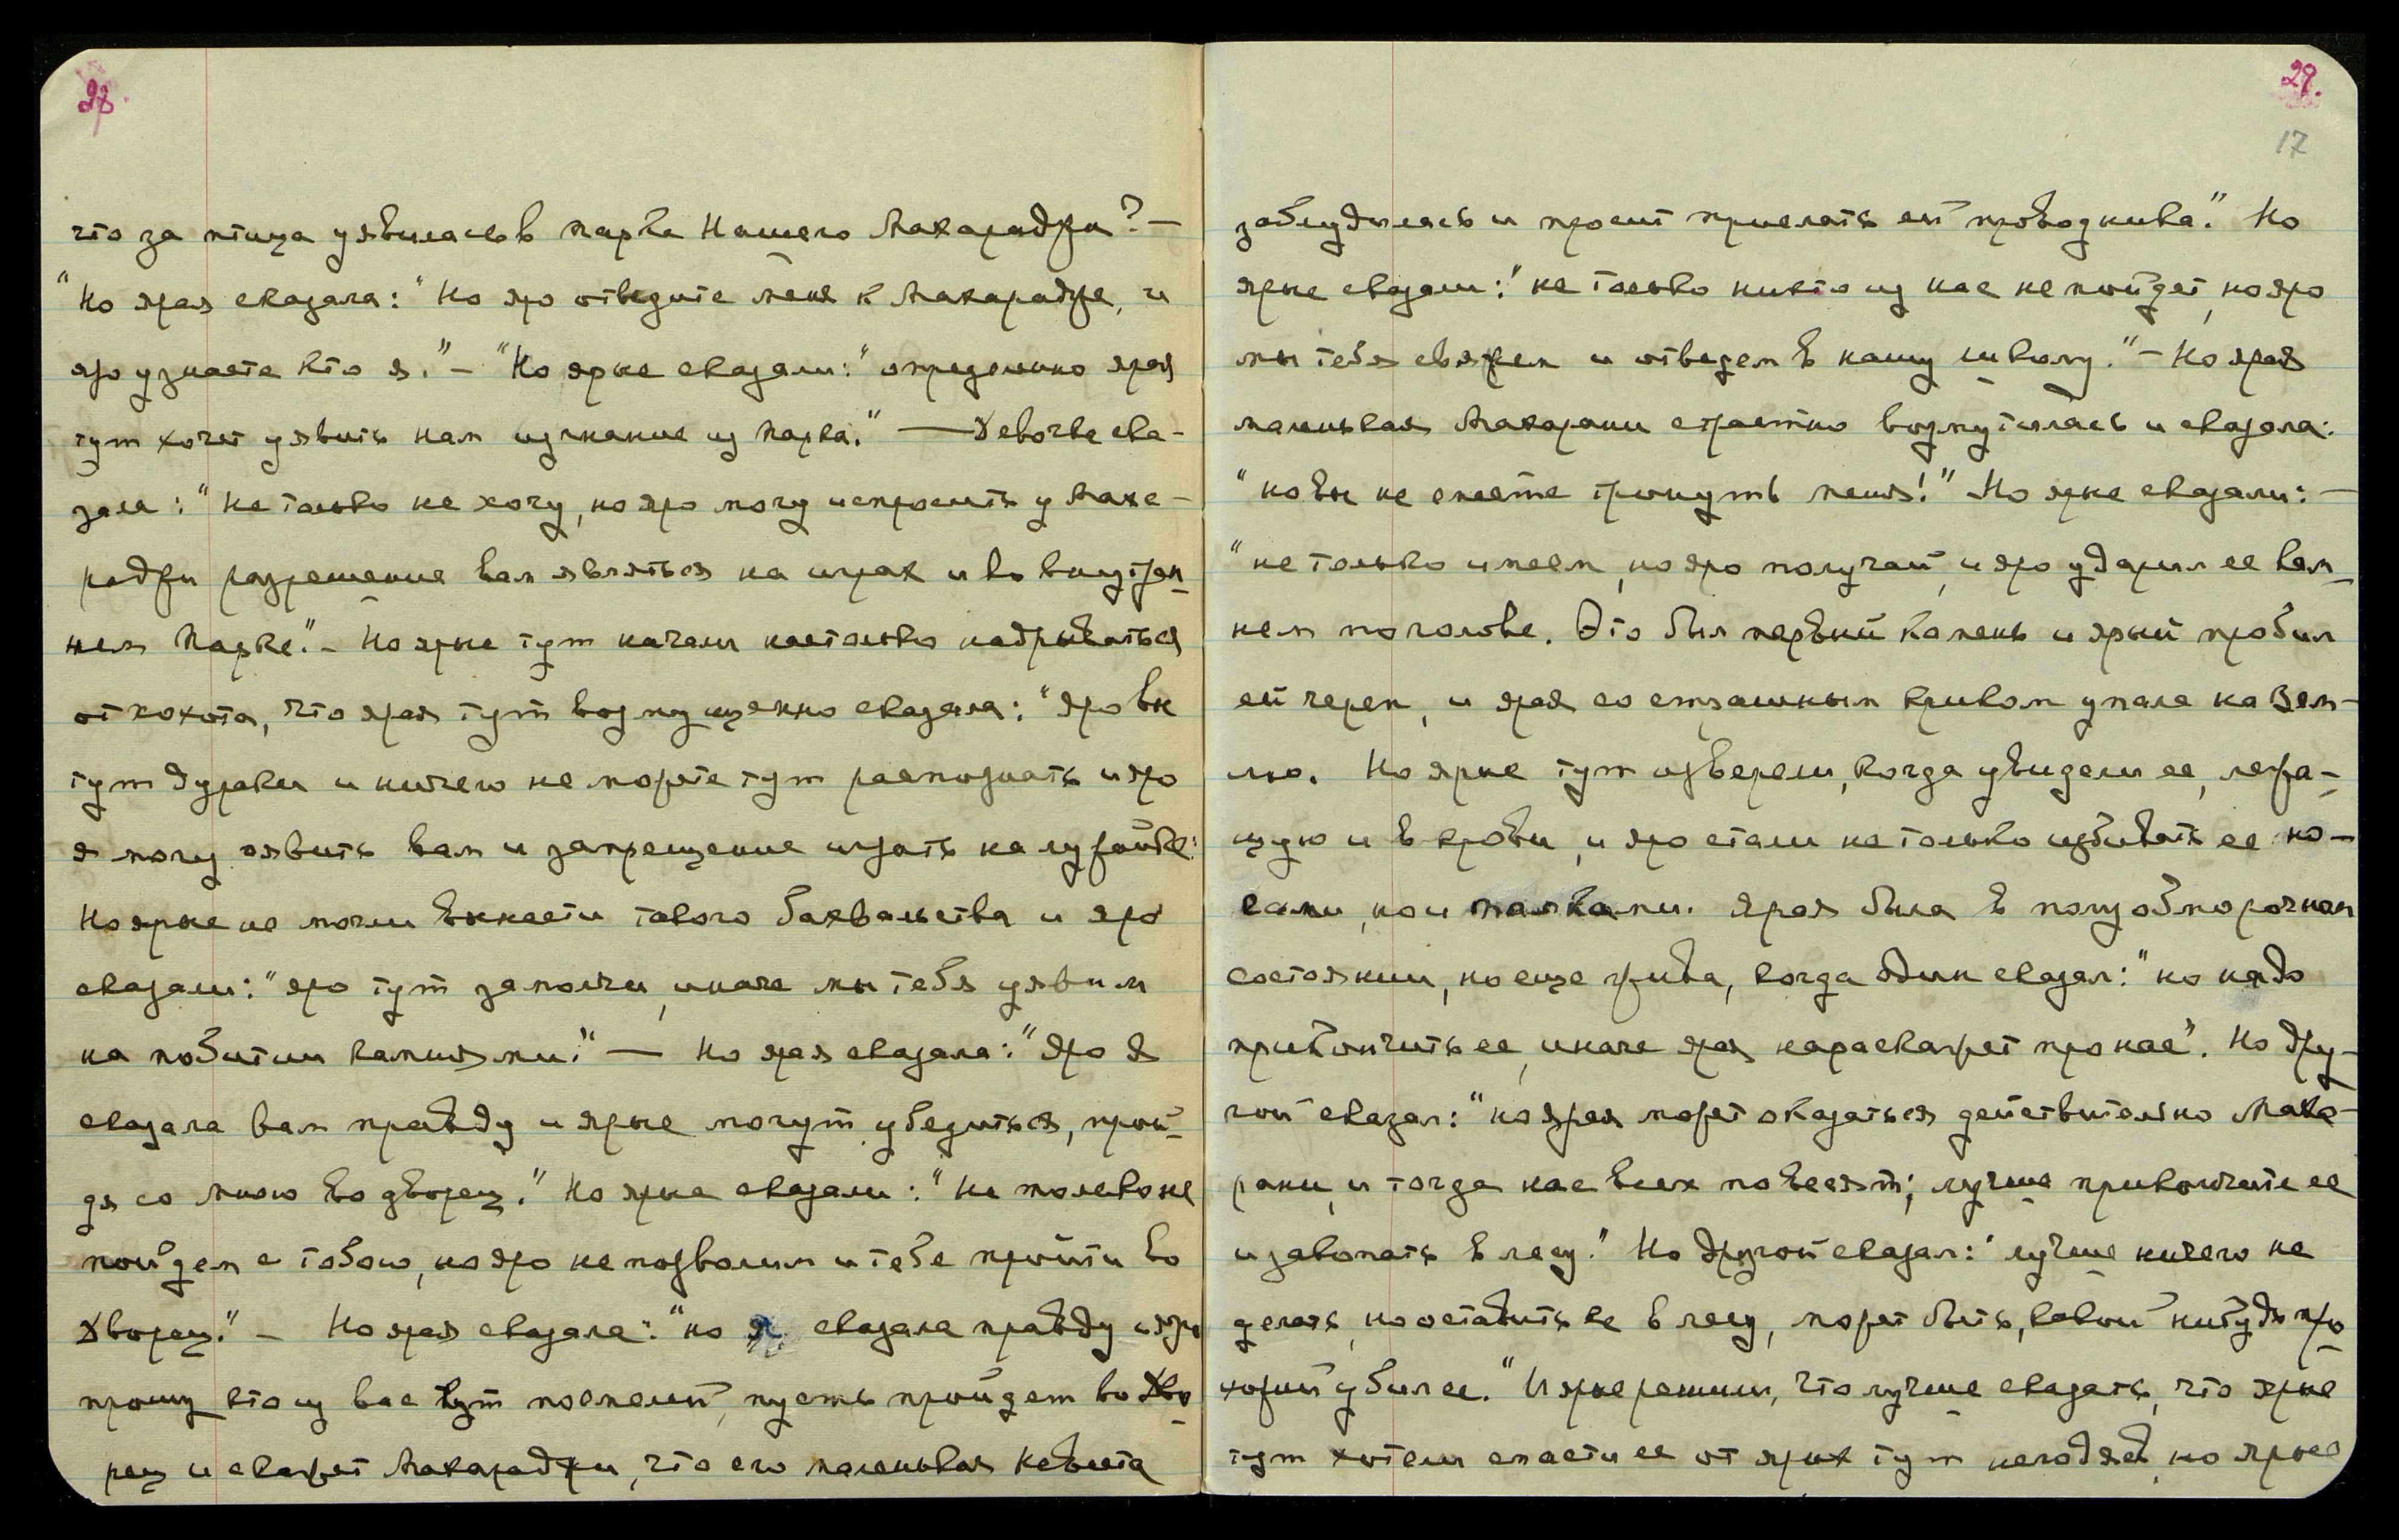 28.
что за птица уявилась в парке Нашего Махараджи? —
"Но ярая сказала: "Но яро отведите меня к Махарадже, и
яро узнаете кто я." — "Но ярые сказали: "определенно ярая
тут хочет уявить нам изгнание из парка." — Девочка ска-
зала: "Не только не хочу, но яро могу испросить у Маха-
раджи разрешение вам являться на играх и во внутрен-
нем Парке." — Но ярые тут начали настолько надрываться
от хохота, что ярая тут возмущенно сказала: "Яро вы
тут дураки и ничего не можете тут распознать и яро
я могу явить вам и запрещение играть на лужайке."
Но ярые не могли вынести такого бахвальства и яро
сказали: "яро тут замолчи, иначе мы тебя уявим
на побитии камнями!" — Но ярая сказала: "Яро Я
сказала вам правду и ярые могут убедиться, прой-
дя со мною во дворец." Но ярые сказали: "Не только не
пойдем с тобою, но яро не позволим и тебе пройти во
Дворец." — Но ярая сказала: "но я сказала правду и яро
прошу кто из вас тут посмелей, пусть пройдет во Дво-
рец и скажет Махараджи, что его маленькая Невеста
29.
17
заблудилась и просит прислать ей проводника." Но
ярые сказали: "не только никто из нас не пойдет, но яро
мы тебя свяжем и отведем в нашу школу." — Но ярая
маленькая Махарани страстно возмутилась и сказала:
"но вы не смеете тронуть меня!" Но ярые сказали: —
"не только имеем, но яро получай, и яро ударил ее кам-
нем по голове. Это был первый камень и ярый пробил
ей череп, и ярая со страшным криком упала на Зем-
лю. Но ярые тут озверели, когда увидели ее, лежа-
щую и в крови, и яро стали не только избивать ее но-
гами, но и палками. Ярая была в полуобморочном
состоянии, но еще жива, когда один сказал: "но надо
прикончить ее, иначе ярая нарасскажет про нас". Но дру-
гой сказал: "но ярая может оказаться действительно Маха-
рани, и тогда нас всех повесят; лучше прикончите ее
и закопать в лесу." Но другой сказал: "лучше ничего не
делать, но оставить ее в лесу, может быть, какой нибудь про-
хожий убил ее." И ярые решили, что лучше сказать, что ярые
тут хотели спасти ее от ярых тут негодяев, но ярые